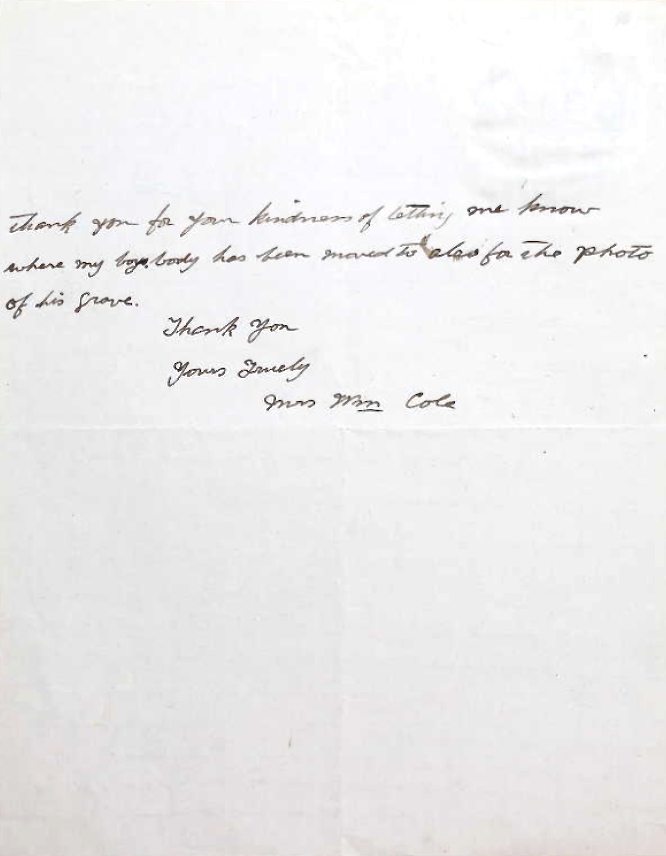 Thank you for your kindness of letting me know
where my boys body has been moved to also for the photo
of his grave.
Thank You
Yours Truely
Mrs Wm Cole